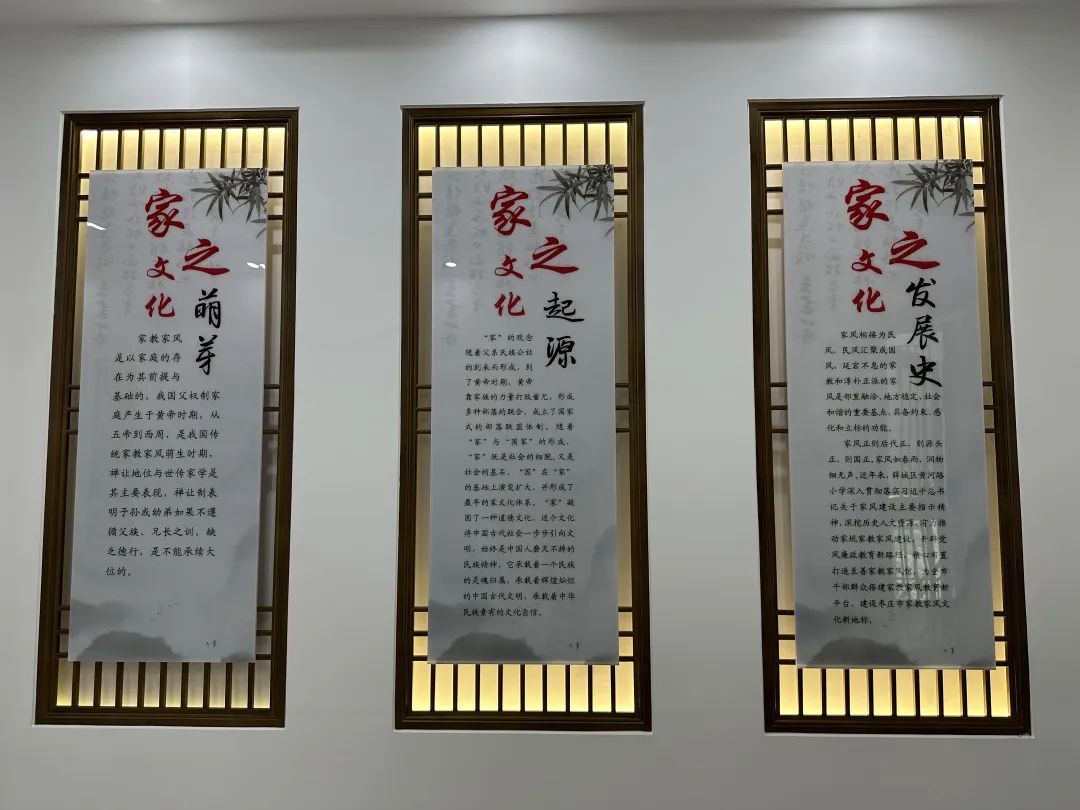 家
之
文化
萌芽
家教家风
是以家庭的存
在为其前提与
基础的，我国父权制家
庭产生于黄帝时期，从
五帝到西周，是我国传
统家教家风萌生时期，
禅让地位与世传家学是
其主要表现，禅让制表
明子孙或幼弟如果不遵
循父族、兄长之训，缺
乏德行，是不能承续大
位的。
家
之
文化
起源
“家”的观念
随着父系民族公社
的到来而形成，到
了黄帝时期，黄帝
靠家族的力量打败蚩尤，形成
多种部落的联合，成立了国家
式的部落联盟体制。随着
“家”与“国家”的形成，
“家”既是社会的细胞，又是
社会的基石，“国”在“家”
的基础上演变扩大，并形成了
最早的家文化体系。“家”凝
固了一种道德文化，这个文化
将中国古代社会一步步引向文
明，始终是中国人磨灭不掉的
民族精神，它承载着一个民族
的灵魂归属，承载着辉煌灿烂
的中国古代文明，承载着中华
民族素有的文化自信。
家
之
文化
发展史
家风相接为民
风，民风汇聚成国
风，延宕不息的家
教和淳朴正派的家
风是邻里融洽、地方稳定、社会
和谐的重要基点，具备约束、感
化和立标的功能。
家风正则后代正，则源头
正，则国正。家风如春雨，润物
细无声。近年来，薛城区黄河路
小学深入贯彻落实习近平总书
记关于家风建设主要指示精
神，深挖历史人文资源，有力推
动家规家教家风建设，开辟党
风廉政教育新路径，精心布置
打造至善家教家风馆，为全市
干部群众搭建家教家风教育新
平台，建设枣庄市家教家风文
化新地标。